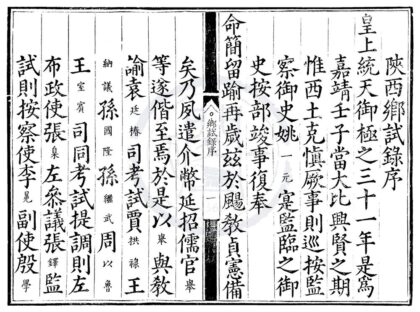 陝西鄉試錄序
皇上統天御極之三十一年是爲
嘉靖壬子當大比興賢之期
惟西土克慎厥事則巡按監
察御史姚一元寔監臨之御
史按部竣事復奉
命簡留踰再歲茲於颺教貞憲備
鄉試錄序
一
矣乃夙遣介幣延招儒官舉
等遂偕至焉於是以與教
諭袁廷椿司考試賈拱祿王
納議孫國隆孫繼武周以魯
王室賓司同考試提調則左
布政使張臬左參議張鐸監
試則按察使李冕副使殷學